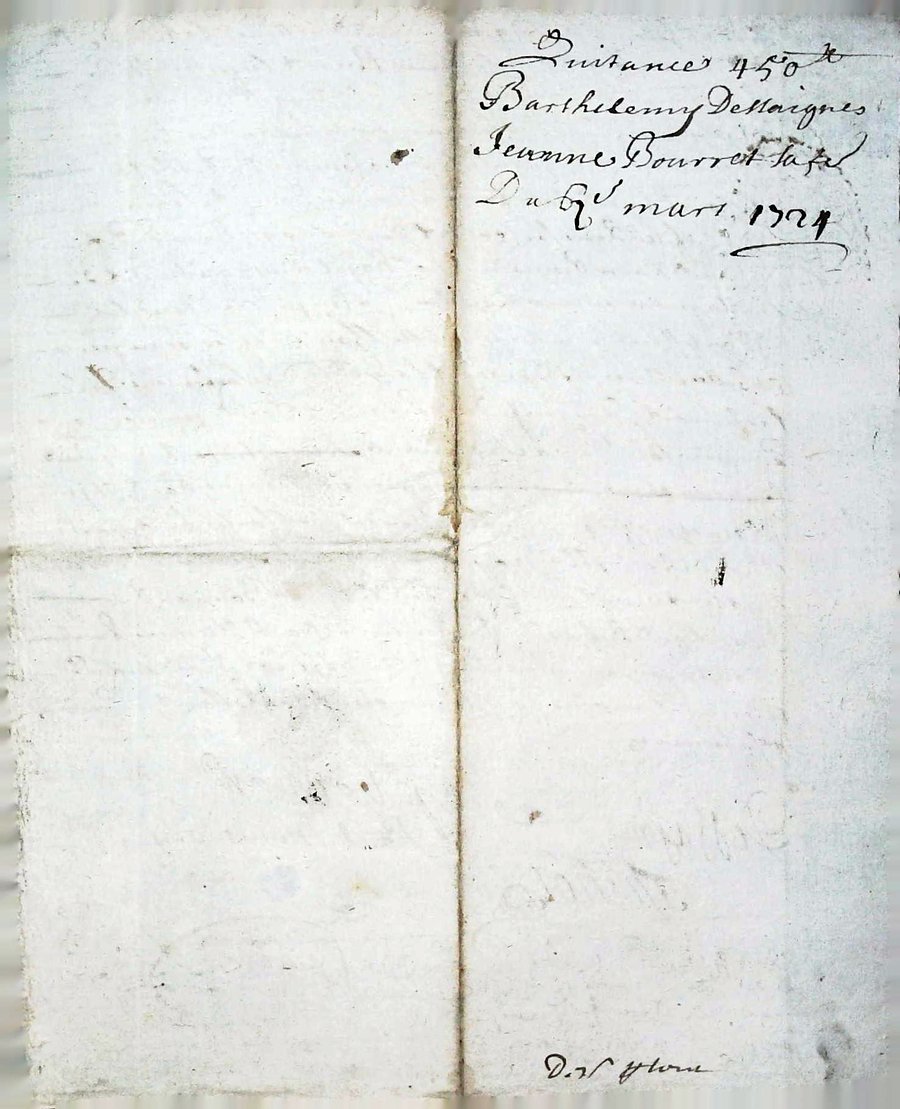 Quitance 450 ₶
Barthelemy Dessaignes
Jeanne Bourret sa fe
Du 6e mars 1724